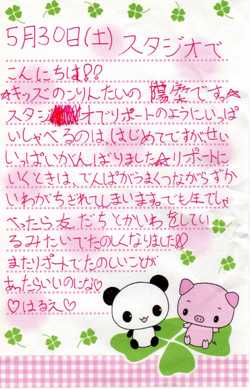 5月30日(土) スタジオで
こんにちは!?
☆キッズのこりんたいの 陽染です。☆
スタジオでリポートのよりにいっぱ
いしゃべるのは、はじめてですがせい
いっぱいがんばりました☆リポートに
いくときは、でんぱがうまくつながらずか
いわがちぎれてしまいます。でも生でしゃ
べったら、友だちとかいわをしてい
るみたいでたのしくなりました!!
またリポートでたのしいことが
あったらいいのにな♡
♡はるえ♡